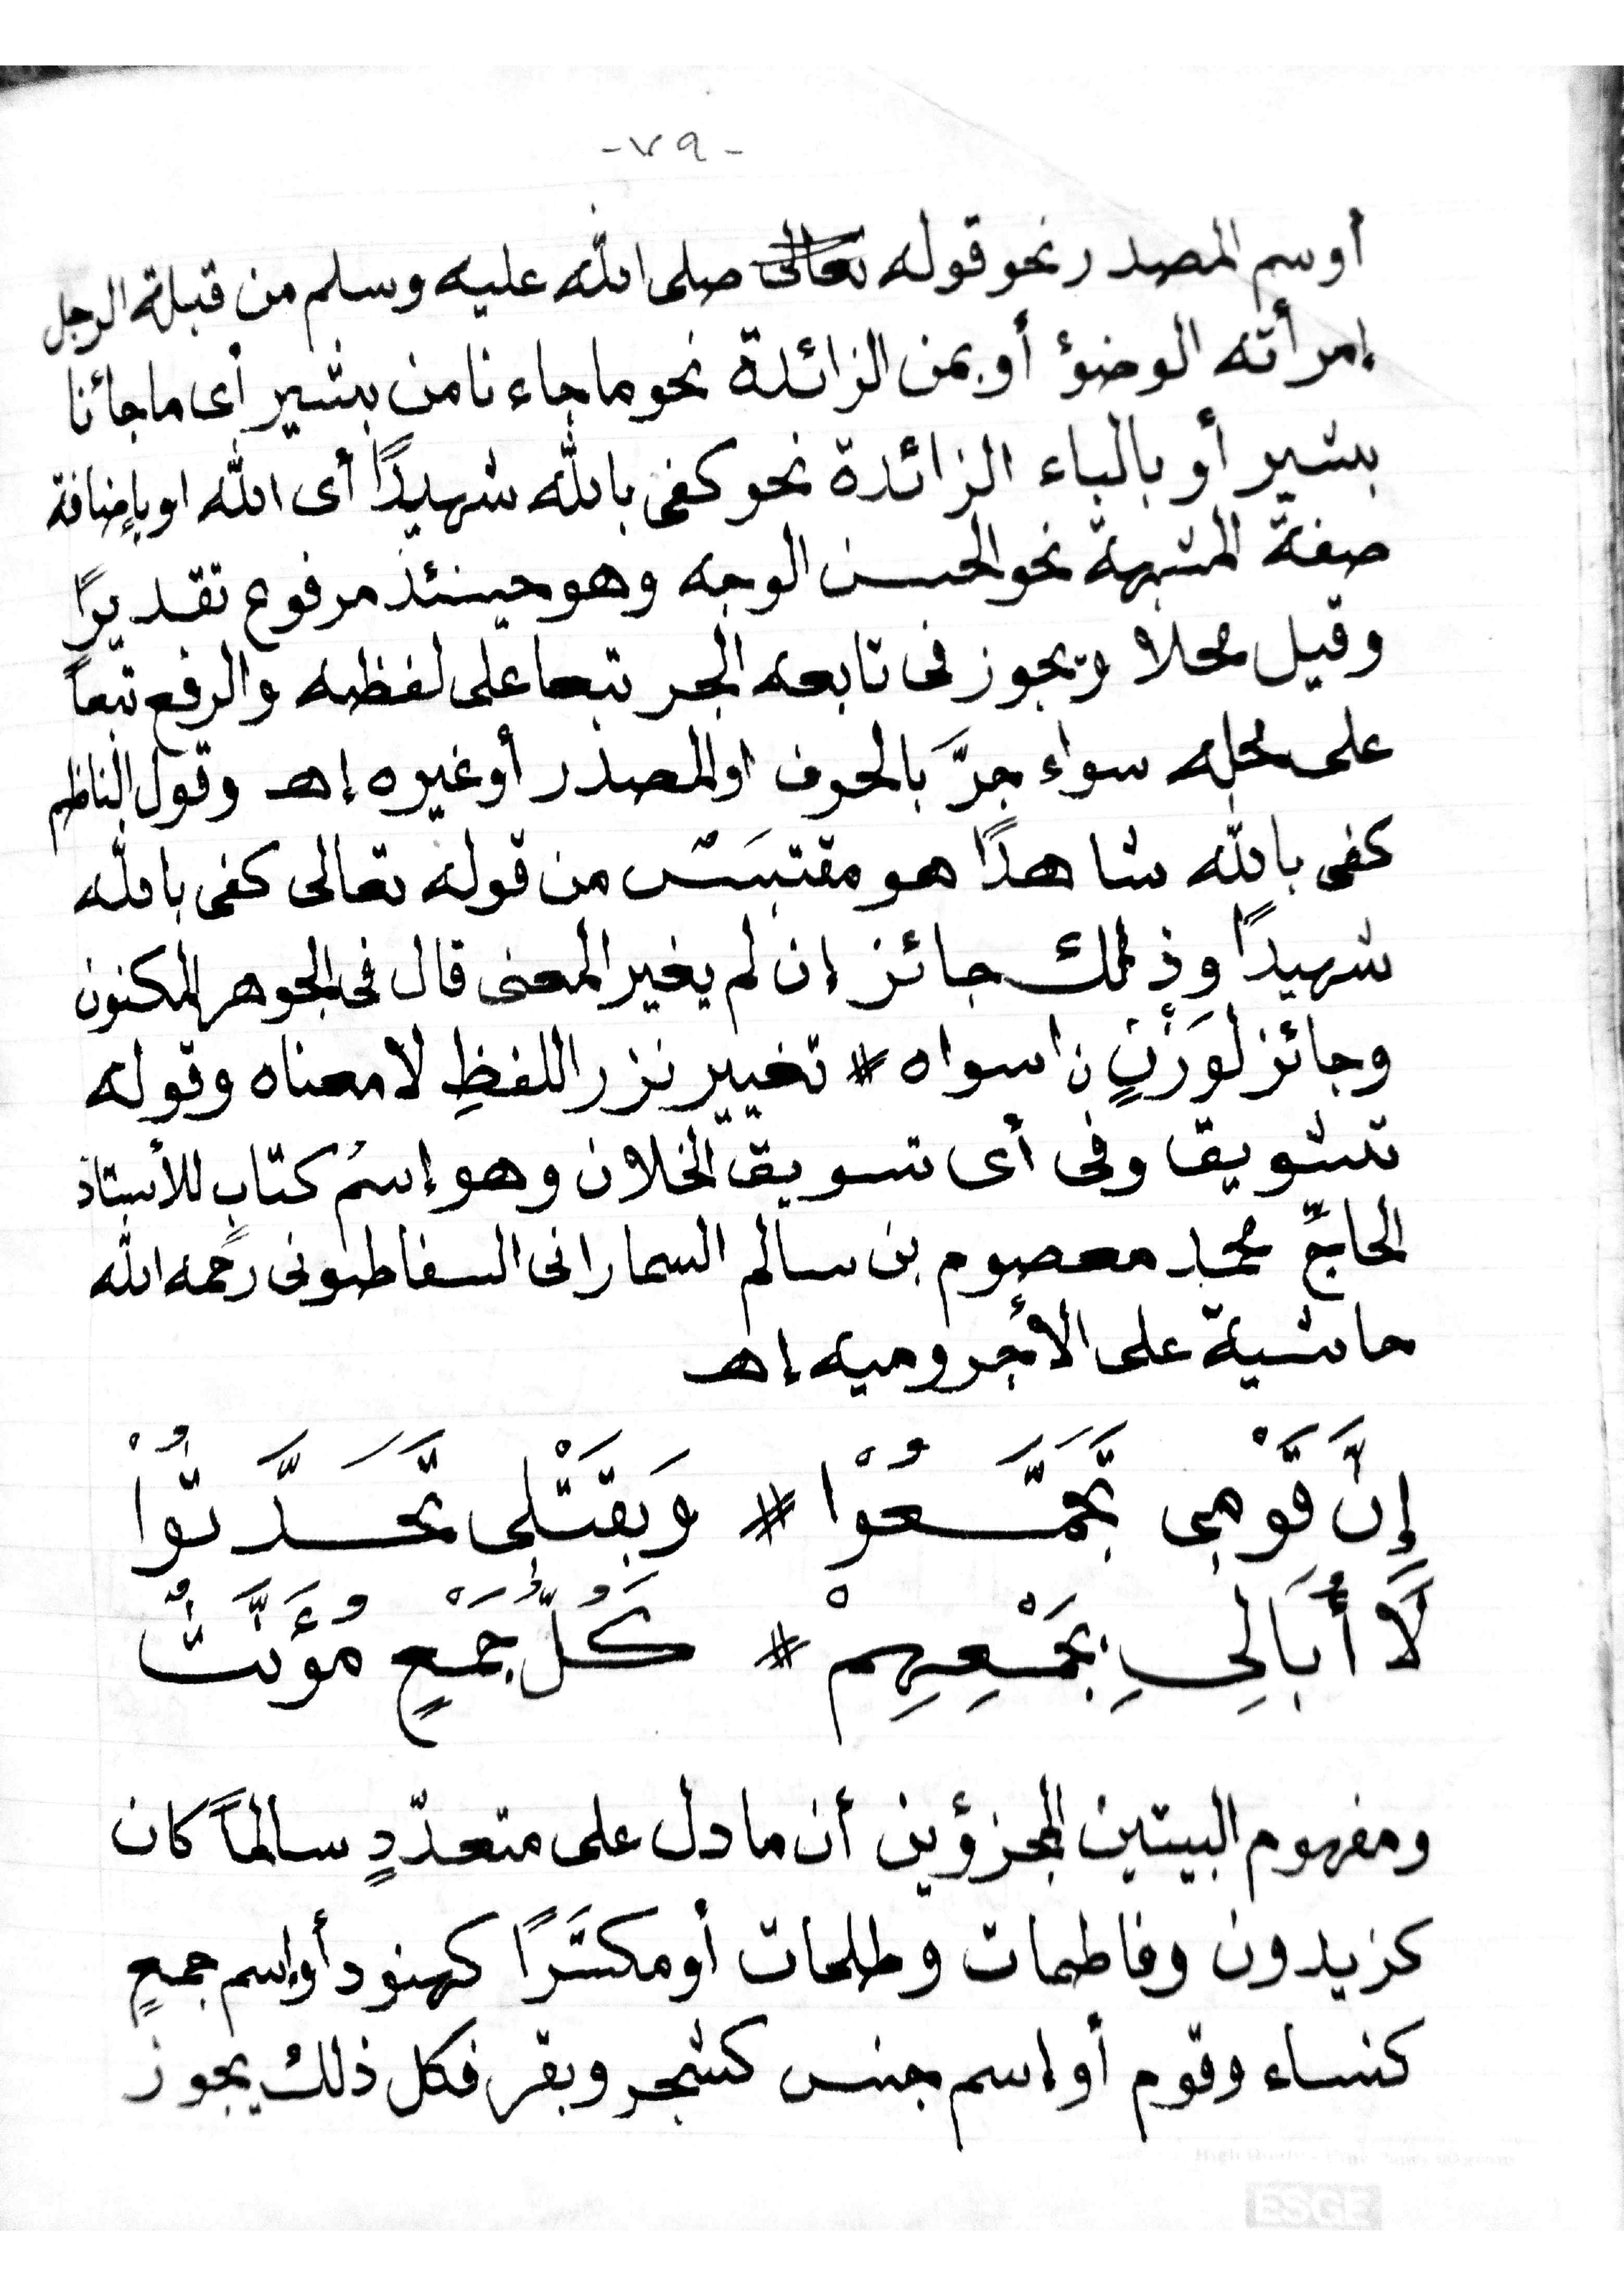 -٧٩-
أوسم المصدر نحو قوله تعالى صلى الله عليه وسلم من قبلة الرجل
إمرأته الوضوؤ أو بمن الزائدة نحو ما جاءنا من بشير أى ما جائنا
بشير أو بالباء الزائدة نحو كفى بالله شهيدًا أى الله او بإضافة
صفة المشبهة نحو الحسن الوجه وهو حينئذ مرفوع تقديرًا
وقيل محلا ويجوز فى تابعه الجر تبعا على لفظه والرفع تبعاً
على محله سواء جرَّ بالحرف او المصدر أو غيره إهـ وقول الناظم
كفى بالله شاهدًا هو مقتبَس من قوله تعالى كفى بالله
شهيدًا وذلك جائز إن لم يغير المعنى قال فى الجوهر المكنون
وجائز لوَزْنٍ ن اسواه # تغيير نزر اللفظِ لا معناه وقوله
تشويق وفى أى تسويق الخلان وهو إسمُ كتابٍ للأستاذ
الحاجّ محمد معصوم بن سالم السمارانى السفاطونى رحمه الله
حاشية على الأجروميه إهـ
إِنَّ قَوْمِى تَجَمَّعُوْا # وَبِقَتْلِى تَحَدَّثُوْا
لَا أُبَالِى بِجَمْعِهِمْ # كُلُّ جَمْعٍ مُؤَنَّثُ
ومفهوم البيتين المجزؤين أن ما دل على متعدّدٍ سالماً كان
كزيدون وفاطمات وطلحات أو مكسَّرًا كهنود أو إسم جمعٍ
كنساء وقوم أو إسم جنس كشجر وبقر فكل ذلك يجوز
ESGE